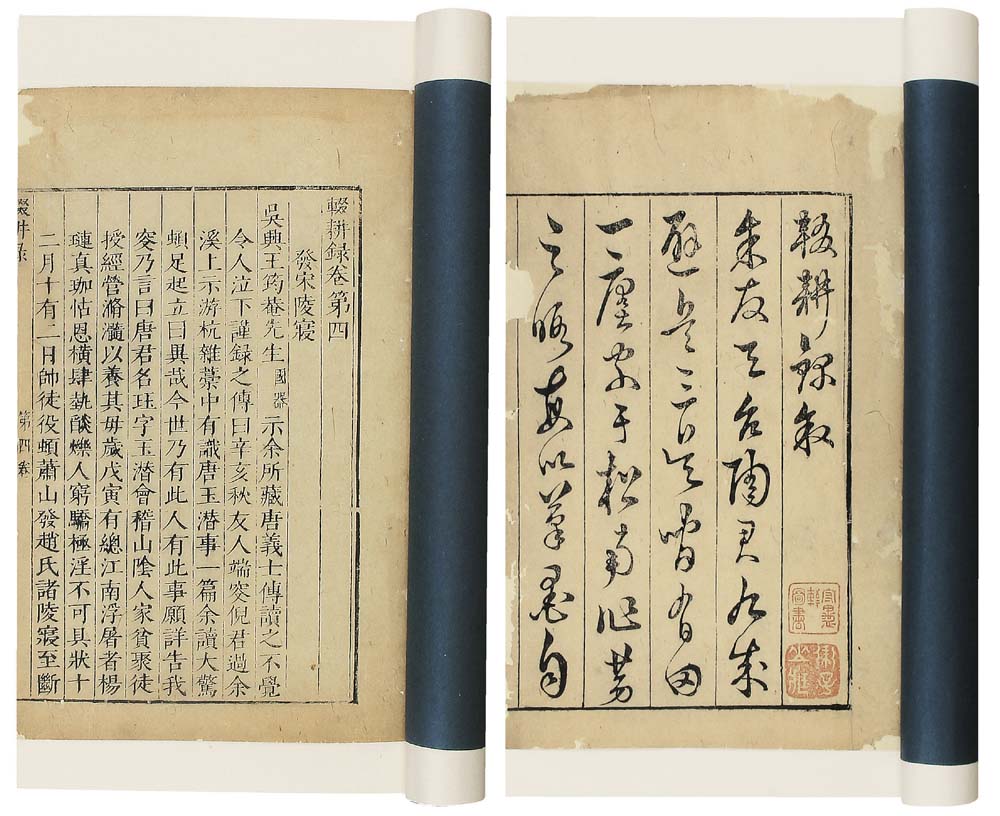 輟耕録卷第四
發宋陵寢
吳興王筠菴先生國器示余所藏唐義士傳讀之不覺
令人泣下謹録之傳曰辛亥秋友人端叜倪君過余
溪上示游杭雜藁中有識唐玉潛事一篇余讀大驚
頓足起立曰異哉今世乃有此人有此事願詳告我
叜乃言曰唐君名珏字玉潛會稽山陰人家貧聚徒
授經營滫瀡以養其母歲戊寅有總江南浮屠者楊
璉真珈怙恩橫肆埶燄爍人窮驕極淫不可具狀十
二月十有二日帥徒役頓蕭山發趙氏諸陵寢至斷
輟耕录
第四卷
輟耕録叙
余友天台陶君九成
避兵三吳間有田
一廛家于松南作勞
之暇每以筆墨自